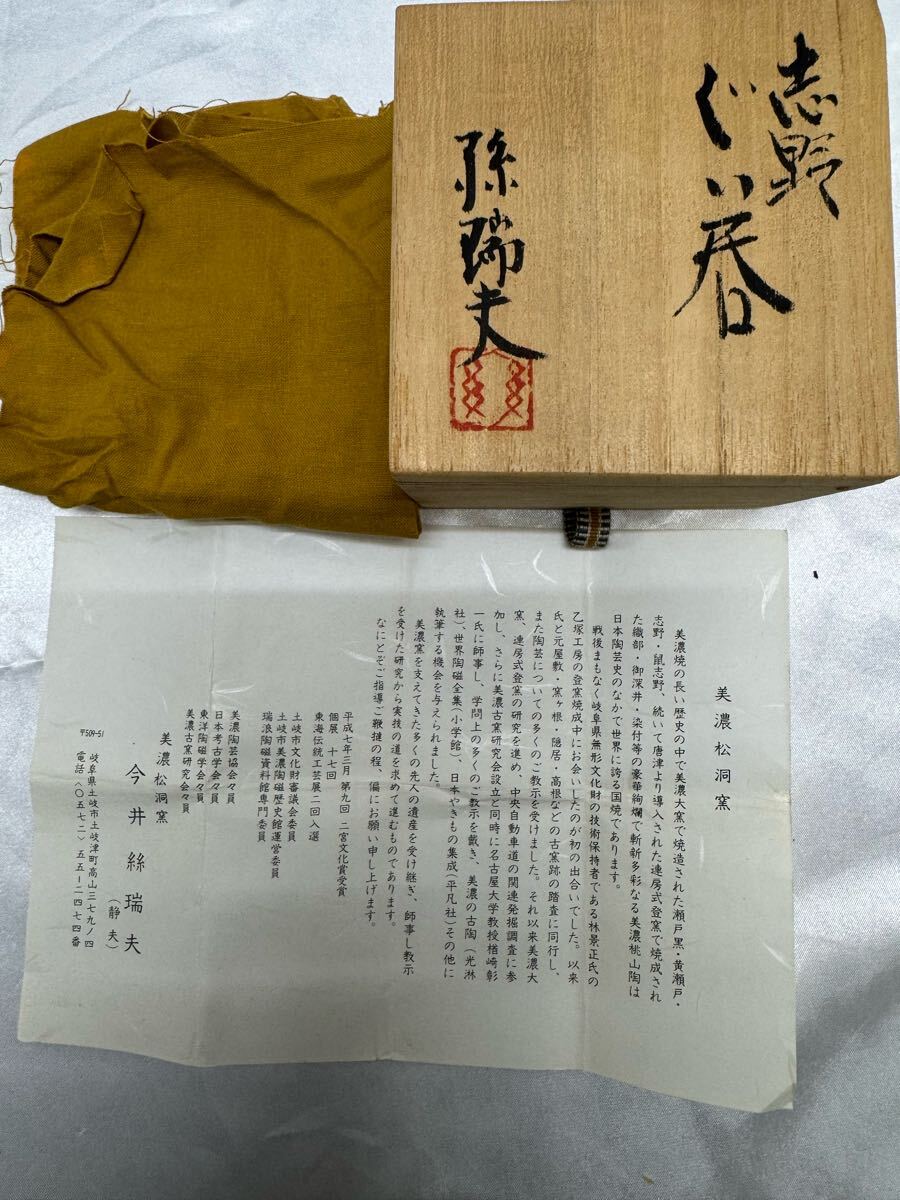 志野
ぐい呑
絲瑞夫
美濃松洞窯
美濃焼の長い歴史の中で美濃大窯で焼造された瀬戸黒・黄瀬戸・
志野・鼠志野、続いて唐津より導入された連房式登窯で焼成され
た織部・御深井・染付等の豪華絢爛で斬新多彩なる美濃桃山陶は
日本陶芸史のなかで世界に誇る国焼であります。
戦後まもなく岐阜県無形文化財の技術保持者である林景正氏の
乙塚工房の登窯焼成中にお会いしたのが初の出合いでした。以来
氏と元屋敷・窯ヶ根・隠居・高根などの古窯跡の踏査に同行し、
また陶芸についての多くのご教示を受けました。それ以来美濃大
窯、連房式登窯の研究を進め、中央自動車道の関連発掘調査に参
加し、さらに美濃古窯研究会設立と同時に名古屋大学教授楢崎彰
一氏に師事し、学問上の多くのご教示を戴き、美濃の古陶(光淋
社)、世界陶磁全集(小学館)、日本やきもの集成(平凡社)その他に
執筆する機会を与えられました。
美濃窯を支えてきた多くの先人の遺産を受け継ぎ、師事し教示
を受けた研究から実技の道を求めて進むものであります。
なにとぞご指導ご鞭撻の程、偏にお願い申し上げます。
平成七年三月 第九回 二宮文化賞受賞
個展 十七回
東海伝統工芸展二回入選
土岐市文化財審議会委員
土岐市美濃陶磁歴史館運営委員
瑞浪陶磁資料館専門委員
美濃陶芸協会々員
日本考古学会々員
東洋陶磁学会々員
美濃古窯研究会々員
美濃松洞窯
今井絲瑞夫
(静夫)
〒509-51
岐阜県土岐市土岐津町高山三七九ノ四
電話(〇五七二)五五―二四七四番